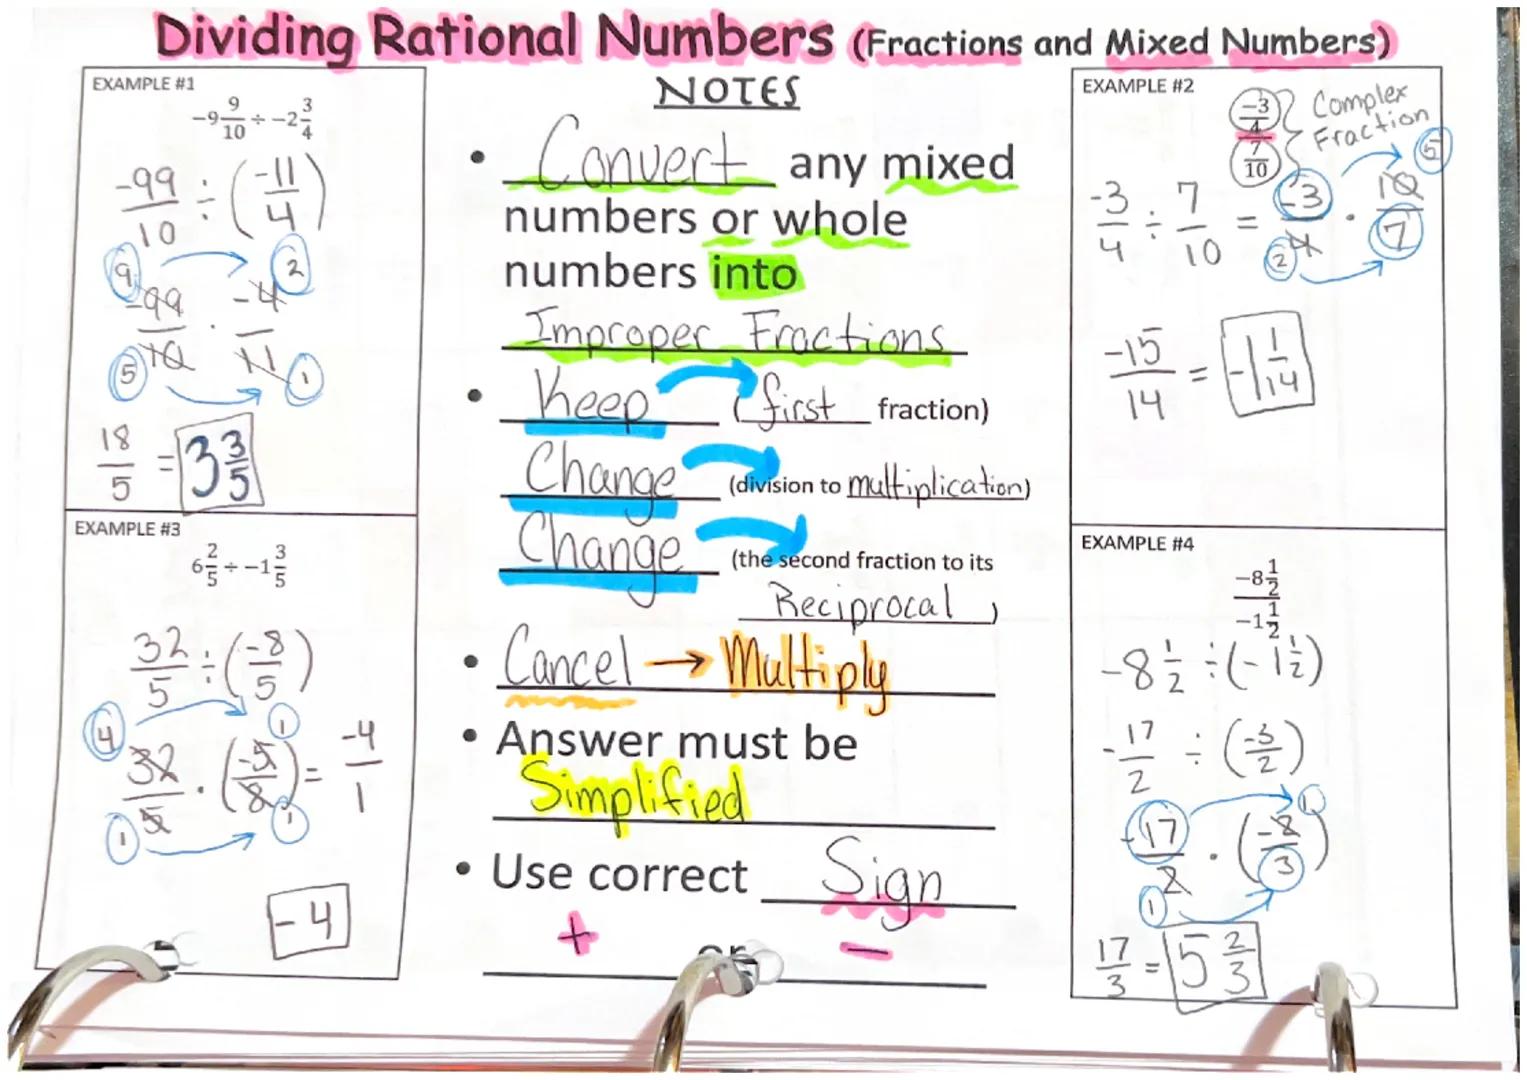 Dividing Rational Numbers (Fractions and Mixed Numbers)
EXAMPLE #1
-9 9/10 ÷ -2 3/4
-99/10 ÷ (-11/4)
9 2
-99/10 · -4/11
5 1
18/5 = 3 3/5
EXAMPLE #3
6 2/5 ÷ -1 3/5
32/5 ÷ (-8/5)
4 1
32/5 · (-5/8) = -4/1
1 1
-4
NOTES
• Convert any mixed
numbers or whole
numbers into
Improper Fractions
• Keep (first fraction)
Change (division to multiplication)
Change (the second fraction to its
Reciprocal)
• Cancel → Multiply
• Answer must be
Simplified
• Use correct Sign
+ or −
EXAMPLE #2
-3/4 / 7/10 Complex
Fraction
5
-3/4 ÷ 7/10 = -3/4 · 10/7
2
-15/14 = -1 1/14
EXAMPLE #4
-8 1/2 / -1 1/2
-8 1/2 ÷ (-1 1/2)
-17/2 ÷ (-3/2)
1
-17/2 · (-2/3)
1
17/3 = 5 2/3